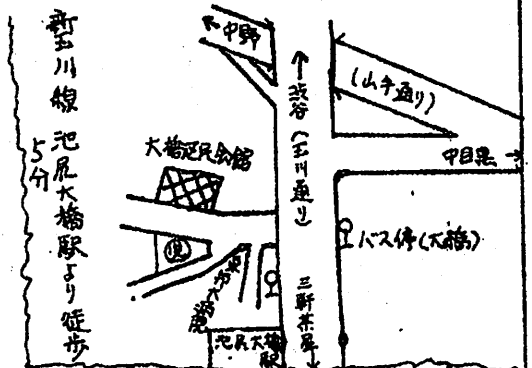 新玉川線 池尻大橋駅より徒歩
5分
←中野
↑渋谷(玉川通り)
(山手通り)
中目黒→
大橋区民会館
バス停(大橋)
三軒茶屋↓
池尻大橋
駅